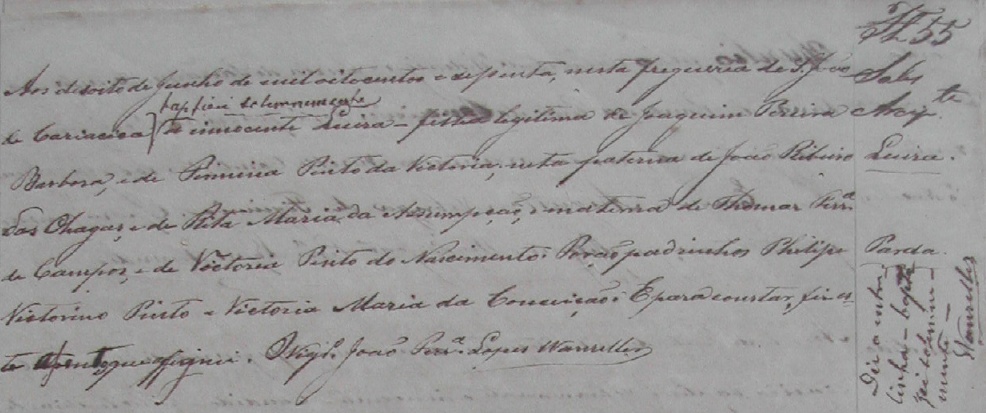 Aos desoito de Junho de mil oitocentos e setenta, nesta freguezia de S. João
de Cariacica
baptizei solemnemente
a innocente Luiza – filha legitima de Joaquim Pereira
Barbosa, e de Firmina Pinto da Victoria; neta paterna de João Ribeiro
das Chagas, e de Rita Maria da Assumpção, e materna de Thomaz Perrª
de Campos, e de Victoria Pinto do Nascimento: Forão padrinhos Philipe
Victorino Pinto e Victoria Maria da Conceição: E para constar, fiz es-
te que assignei. O Vigrº. João Ferrª. Lopes Wanzeller
55
Luiza.
Parda.
Diz a entre-
linha – bapti-
zei solemne-
mente –
Wanzeller